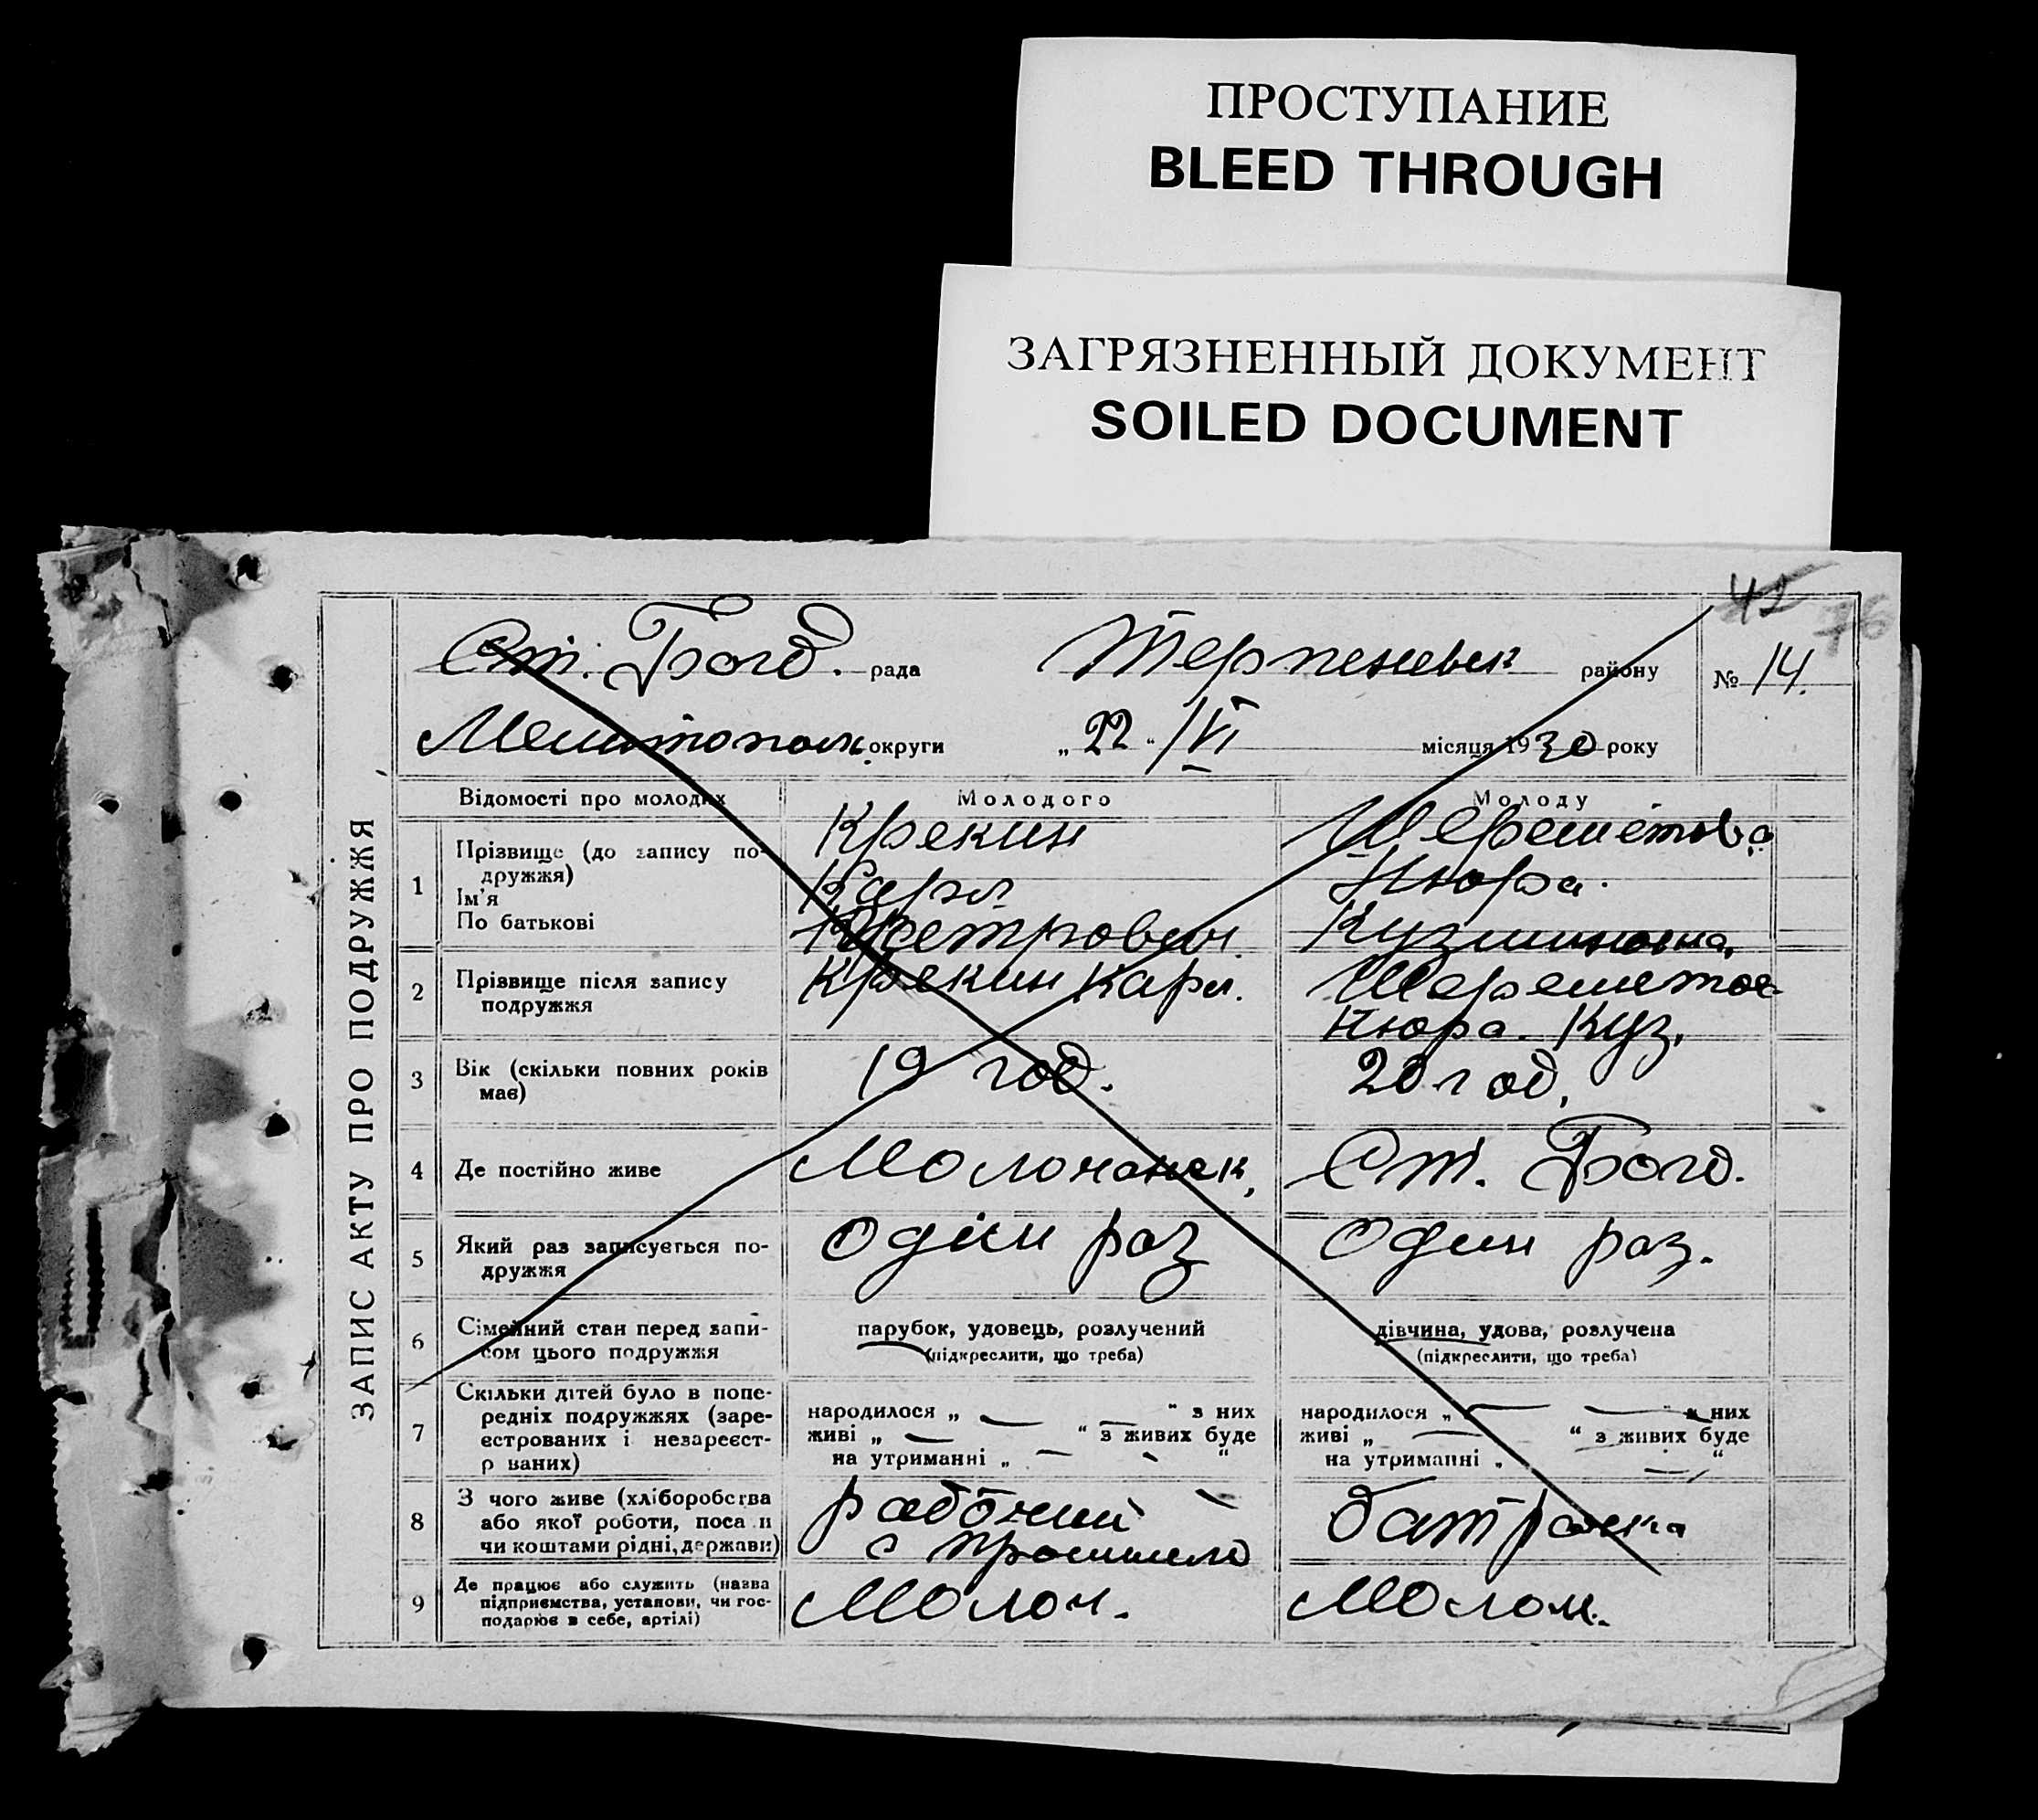 ПРОСТУПАНИЕ
BLEED THROUGH
ЗАГРЯЗНЕННЫЙ ДОКУМЕНТ
SOILED DOCUMENT
ЗАПИС АКТУ ПРО ПОДРУЖЖЯ
42 76
Ст. Богд. рада Терпеневск району № 14.
Мелитополь. округи „ 22 “ /VI місяця 1930 року
Відомості про молодих Молодого Молоду
1 Прізвище (до запису по-
дружжя)
Ім'я
По батькові
Крекин
Карл
Петрович
Шереметова
Нюра.
Кузминовна,
2 Прізвище після запису
подружжя
Крекин Карл.
Шереметов
Нюра. Куз.
3 Вік (скільки повних років
має)
19 год.
20 год,
4 Де постійно живе Молочанск, Ст. Богд.
5 Який раз записується по-
дружжя
Один раз
Один раз.
6 Сімейний стан перед запи-
сом цього подружжя
парубок, удовець, розлучений
(підкреслити, що треба)
дівчина, удова, розлучена
(підкреслити, що треба)
7 Скільки дітей було в попе-
редніх подружжях (заре-
єстрованих і незареєст-
р ваних)
народилося „ — — “ з них
живі „ — “ з живих буде
на утриманні „ — “
народилося „ — — “ з них
живі „ — “ з живих буде
на утриманні „ — “
8 З чого живе (хліборобства
або якої роботи, поса и
чи коштами рідні, держави)
рабочий
с
батрачка
9 Де працює або служить (назва
підприємства, установи, чи гос-
подарює в себе, артілі)
Молоч.
Молоч.